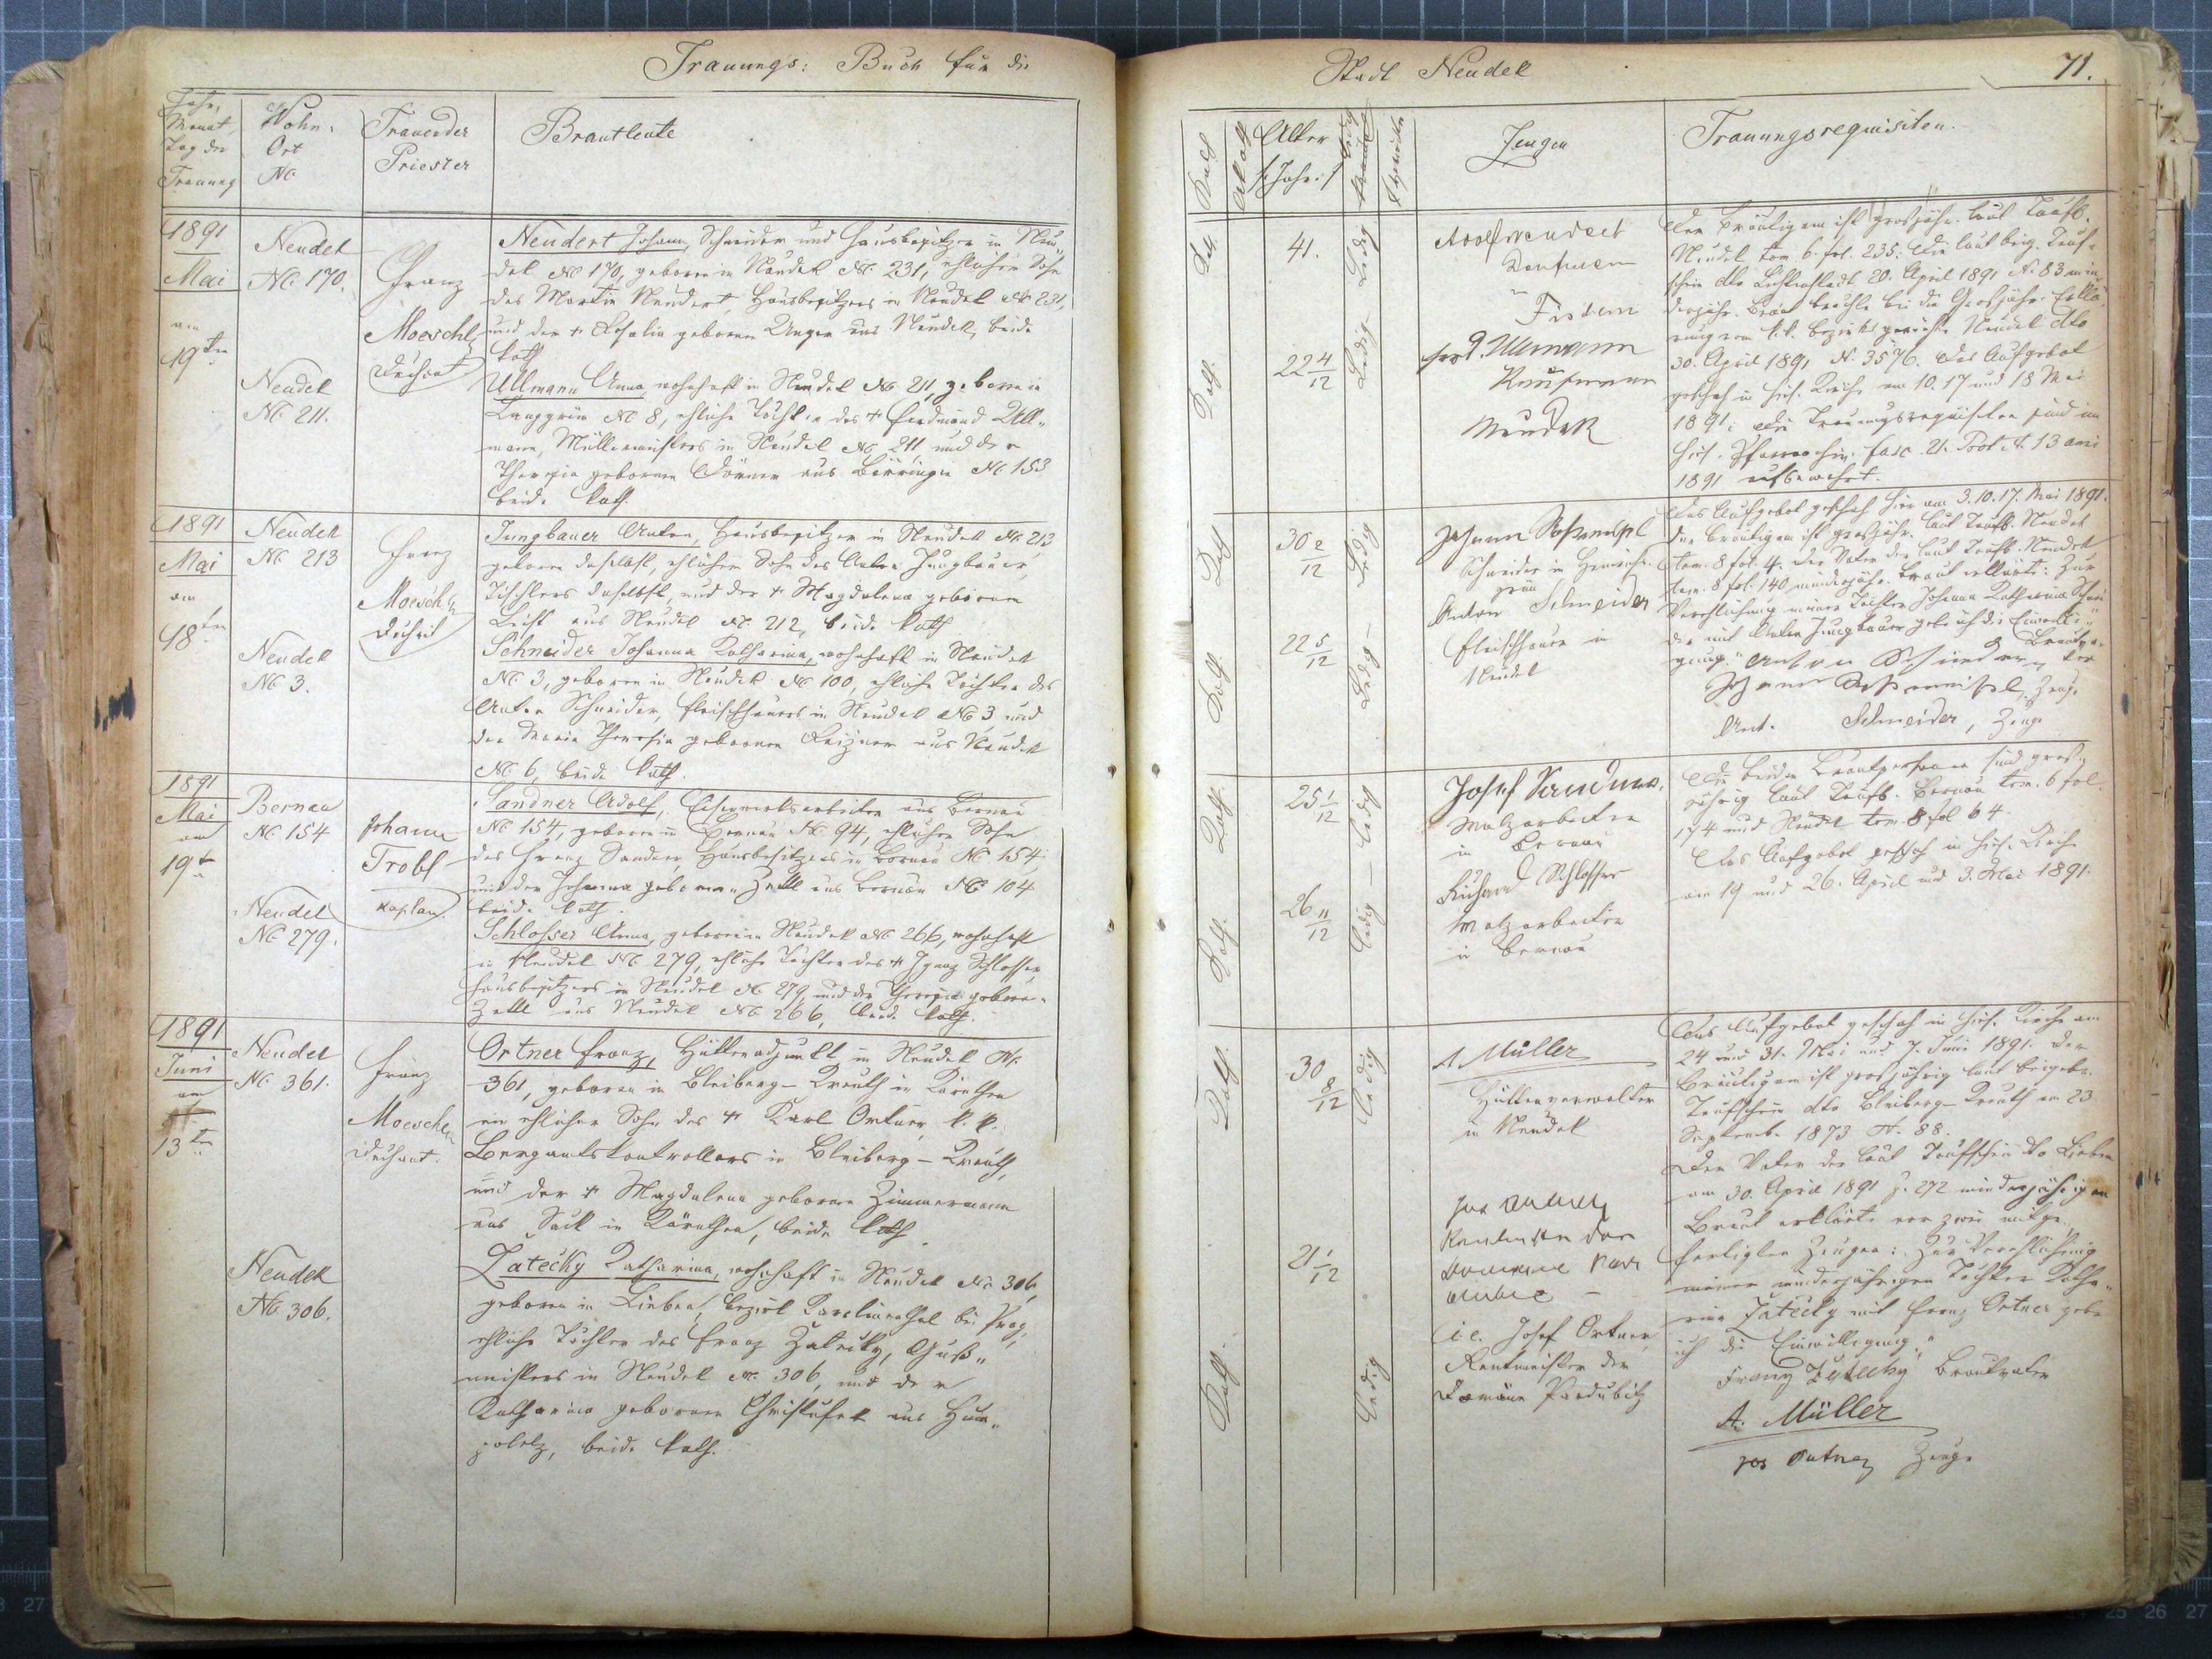 Trauungs: Buch für die
Jahr,
Monat,
Tag der
Trauung
Wohn-
Ort
No
Trauender
Priester
Brautleute
1891
Mai
am
19ten
Neudek
No 170.
Neudek
No 211.
Franz
Moeschl,
Dechant
Neudert Johann, Schneider und Hausbesitzer in Neu„
dek No 170, geboren in Neudek No. 231, ehlicher Sohn
des Martin Neudert, Hausbesitzers in Neudek No 231,
und der † Rosalia geborenen Unger aus Neudek, beide
kath
Ullmann Anna, wohnhaft in Neudek No 211, geboren in
Langgrün No 8, ehliche Tochter des † Ferdinand Ull„
mann, Müllermeisters in Neudek No 211 und der
Theresia geborenen Dörner aus Bärringen No 153
beide kath.
1891
Mai
am
18ten
Neudek
No 213
Neudek
No 3.
Franz
Moeschl,
Dechant
Jungbauer Anton, Hausbesitzer in Neudek No. 213
geboren daselbst, ehlicher Sohn des Anton Jungbauer,
Tischlers daselbst, und der † Magdalena geborenen
aus Neudek No. 212, beide kath
Schneider Johanna Katharina, wohnhaft in Neudek
No 3, geboren in Neudek No 100, ehliche Tochter des
Anton Schneider, Fleischhauers in Neudek No 3 und
der Maria Theresia geborenen aus Neudek
No 6, beide kath.
1891
Mai
am
19te
Bernau
No 154
Neudek
No 279.
Johann
Trobl
Kaplan
Sandner Adolf, Eisenwerksarbeiter aus Bernau
No 154, geboren in Bernau No. 94, ehlicher Sohn
des Franz Sandner, Hausbesitzers in Bernau No 154;
und der Johanna geborenen Zettl aus Bernau No 104
beide kath.
Schlosser Anna, geboren in Neudek No 266, wohnhaft
in Neudek No. 279, ehliche Tochter des † Ignaz Schlosser,
Hausbesitzers in Neudek No 279, und der Theresia gebore-
Zettl aus Neudek No 266, beide kath.
1891
Juni
am
13ten
Neudek
No. 361.
Neudek
No. 306.
Franz
Moeschl,
Dechant.
Ortner Franz, Hüttenadjunkt in Neudek No.
361, geboren in Bleiberg-Kreuth in Kärnthen
ein ehlicher Sohn des † Karl Ortner, k. k.
Bergamtskontrollors in Bleiberg-Kreuth,
und der † Magdalena geborenen Zimmermann
aus Sack in Kärnthen, beide kath.
Zatecky Katharina, wohnhaft in Neudek No 306,
geboren in Lieben, Bezirk Karolinenthal bei Prag,
ehliche Tochter des Franz Zatecky, Guß„
meisters in Neudek No. 306, und der
Katharina geborenen aus Hum„
poletz, beide kath.
Stadt Neudek
71.
Kath
Akath
Alter
/:Jahr:/
Ledig
Zeugen
Trauungsrequisiten.
Kath.
41.
Ledig
Kath.
22 4/12
Ledig
Adolf Neudert
Kaufmann
in
Ferd. Ullmann
Kaufmann
Neudek
Der Bräutigam ist großjähr. laut Taufb.
Neudek tom 6. fol. 235; Die laut beig. Tauf-
schein dto Lichtenstadt 20. April 1891 N. 83 min
derjähr. Braut brachte bei die Großjähr. Erklä-
rung vom k.k. Bezirksgerichte Neudek dto
30. April 1891, N. 3576. Das Aufgebot
geschah in hies. Kirche am 10. 17 und 18 Mai
1891; Die Trauungsrequisiten sind im
hies. Pfarrarchiv fasc. 21. Prot N. 13 ani
1891 aufbewahrt.
Kath
30 2/12
Ledig
Kath.
22 5/12
Ledig
Johann
Schneider in Heinrichs-
grün
Anton Schneider
Fleischhauer in
Neudek
Das Aufgebot geschah hier am 3. 10. 17. Mai 1891.
Der Bräutigam ist grosjähr. laut Taufb. Neudek
tom. 8 fol. 4. Der Vater der laut Taufb. Neudek
tom. 8 fol. 140 minderjähr. Braut erklärt: Zur
Verehlichung meiner Tochter Johanna Katharina Schnei
der mit Anton Jungbauer gebe ich die Einwilli„
gung." Anton Schneider, Brautva-
ter
Johann Zeuge
Ant. Schneider, Zeuge
Kath.
25 1/12
Ledig
Kath.
26 11/12
Ledig
Josef Sandner,
Walzarbeiter
in Bernau
Richard Schlosser
Walzarbeiter
in Bernau
Die beiden Brautpersonen sind gros-
jährig laut Taufb. Bernau tom. 6 fol.
174 und Neudek tom. 8 fol 64.
Das Aufgebot geschah in hies. Kirche
am 19 und 26. April und 3. Mai 1891.
Kath.
30 8/12
Ledig
Kath.
21 1/12
Ledig
A. Müller
Hüttenverwalter
in Neudek
Jos Ortner
Rentmeister der
Domäne Pardubitz
i.e. Josef Ortner,
Rentmeister der
Domäne Pardubitz
Das Aufgebot geschah in hies. Kirche am
24 und 31. Mai und 7. Juni 1891. Der
Bräutigam ist grosjährig laut beigebr.
Taufschein dto Bleiberg-Kreuth am 23
Septemb. 1873 N. 88.
Der Vater der laut Taufschein dto Lieben
am 30. April 1891 Z. 272 minderjährigen
Braut erklärte vor zwei mitge„
fertigten Zeugen: „Zur Verehlichung
meiner minderjährigen Tochter Katha„
rina Zatecky mit Franz Ortner gebe
ich die Einwilligung."
Franz Zatecky Brautvater
A. Müller
Jos Ortner Zeuge